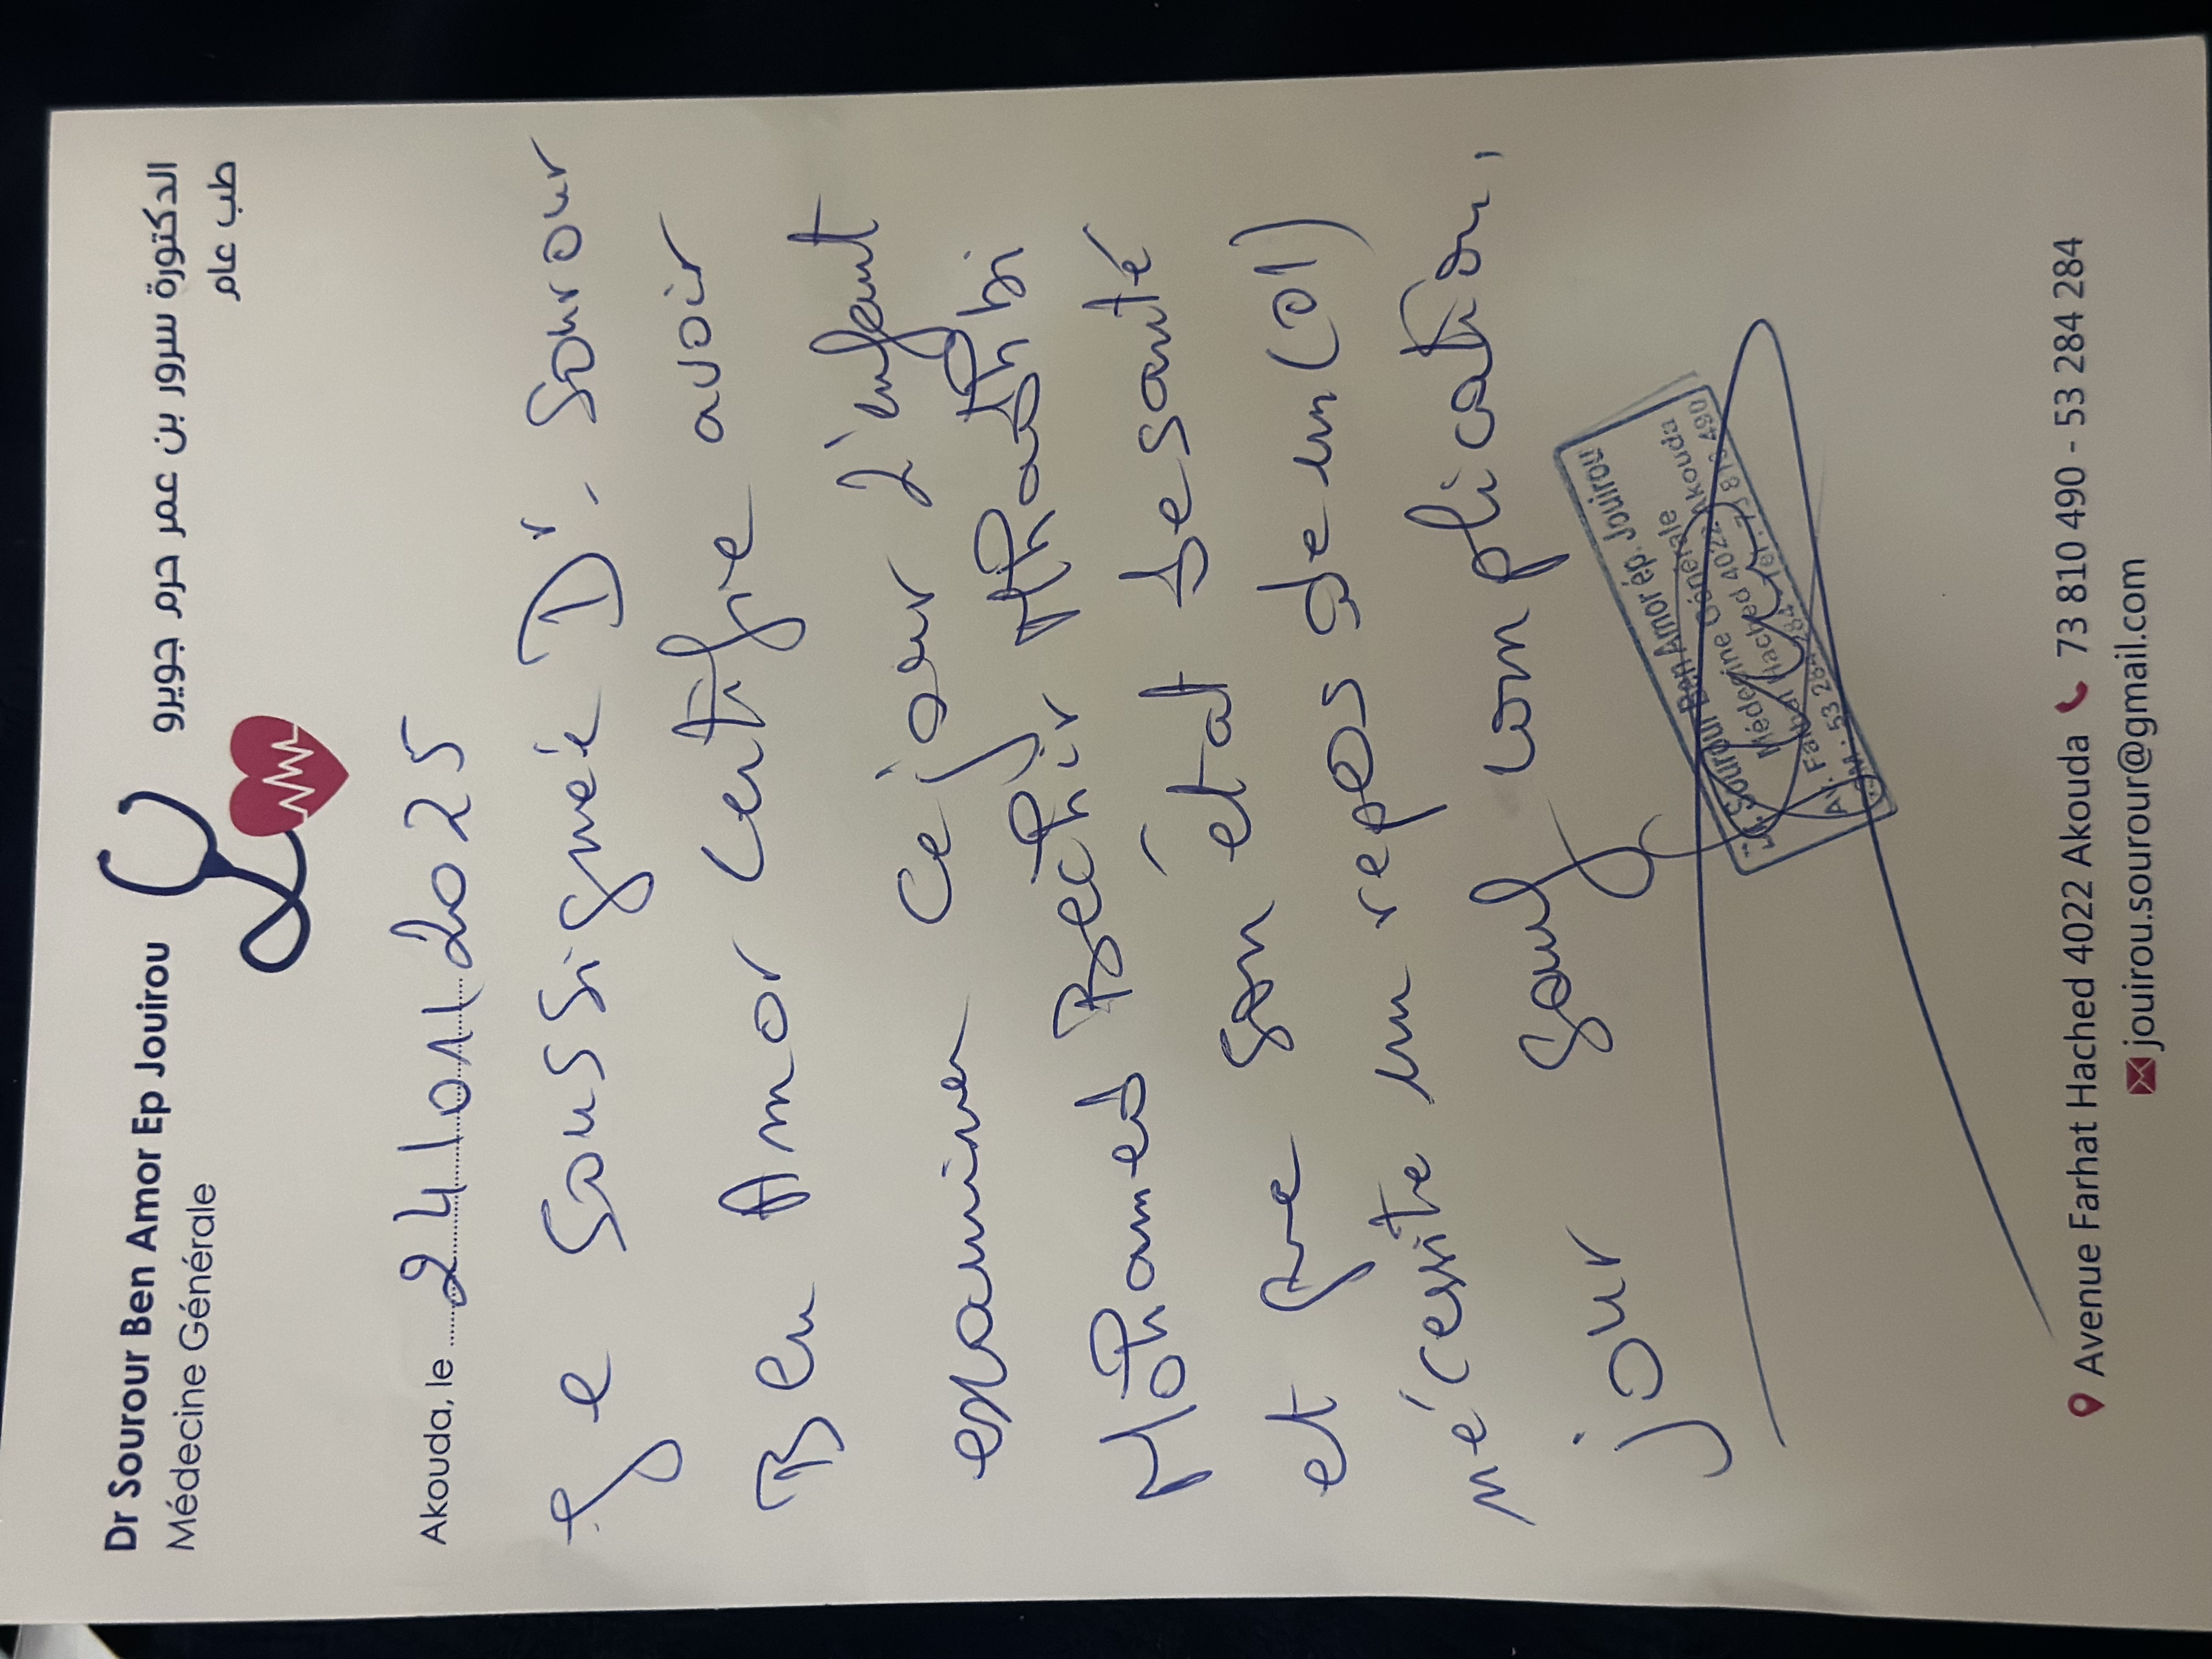 Dr Sourour Ben Amor Ep Jouirou
Médecine Générale
الدكتورة سرور بن عمر حرم جويرو
طب عام
Akouda, le 24/01/2025
Je soussignée Dr. Sourour
Ben Amor certifie avoir
examiner ce jour l'enfant
Mohamed Bechir
et que son état de santé
nécessite un repos de un (01)
jour sauf complication.
Dr. Sourour Ben Amor ép. Jouirou
Médecine Générale
Av. Farhat Hached 4022 Akouda
73 810 490
Avenue Farhat Hached 4022 Akouda 73 810 490 - 53 284 284
jouirou.sourour@gmail.com